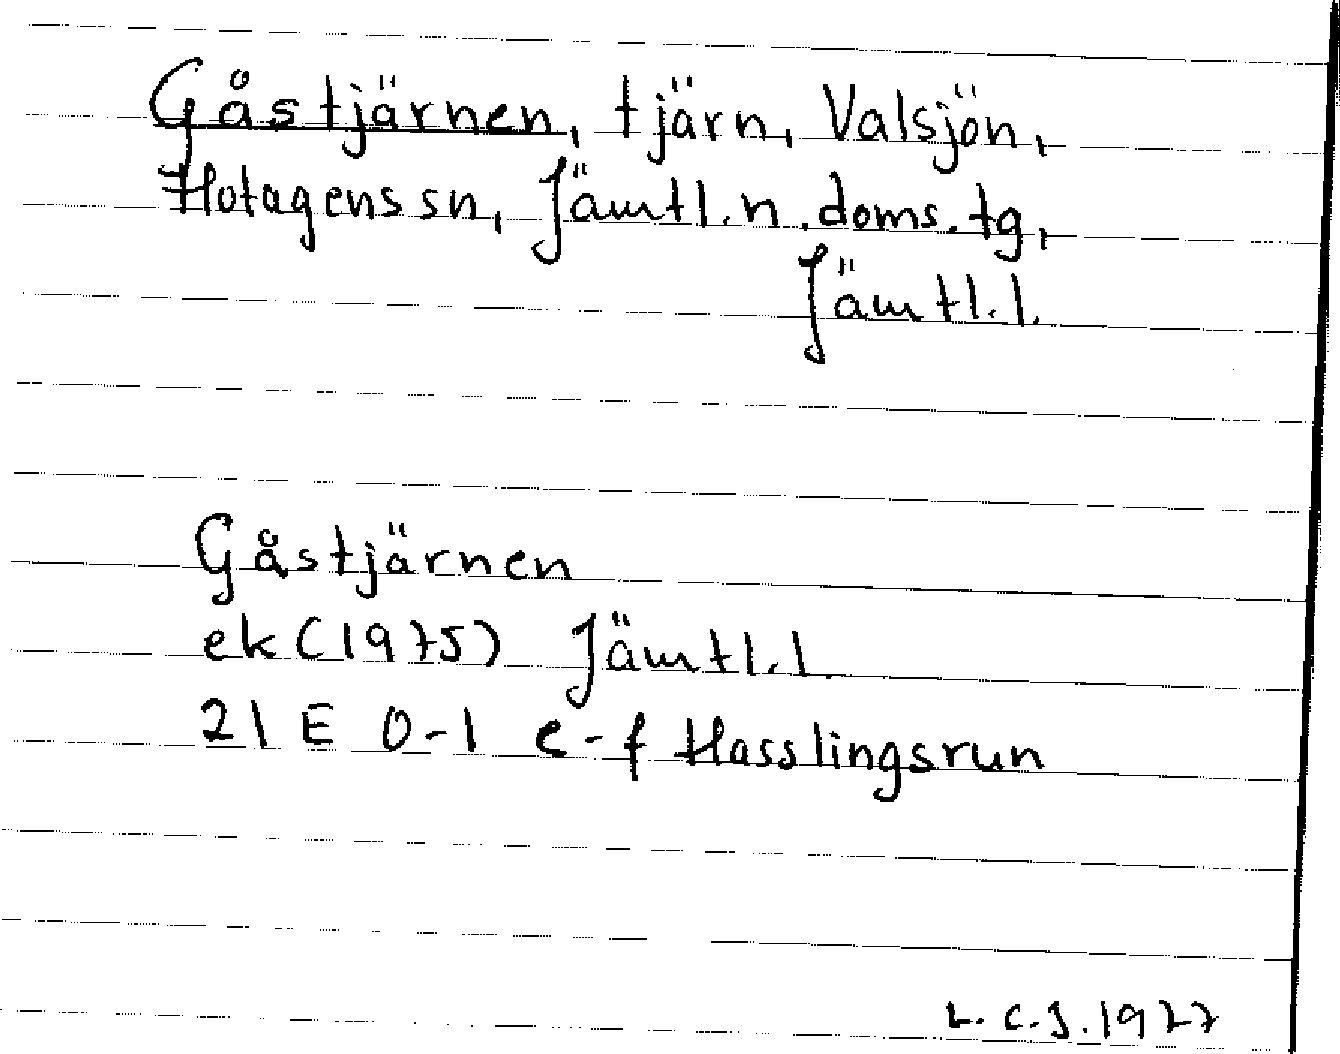 Gåstjärnen, tjärn, Valsjön,
Hotagens sn, Jämtl. n. doms. tg,
Jämtl. l.
Gåstjärnen
ek (1975) Jämtl. l.
21 E 0-1 e-f Hasslingsrun
L. C. J. 1977